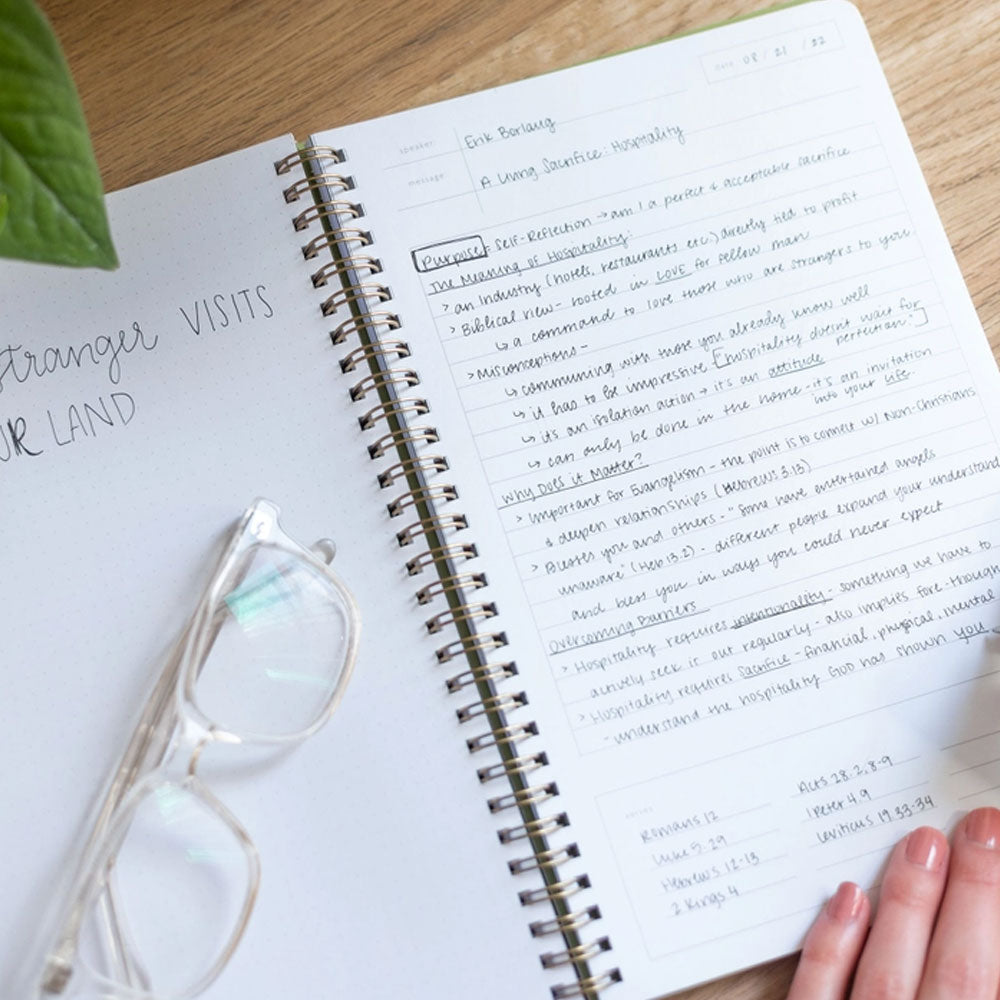 Stranger VISITS
UR LAND
Date 08 / 21 / 22
speaker: Erik Borlaug
message: A Living Sacrifice: Hospitality
Purpose: Self-Reflection → am I a perfect & acceptable sacrifice
The Meaning of Hospitality:
> an Industry (hotels, restaurants etc.) directly tied to profit
> Biblical view - rooted in LOVE for fellow man
↳ a command to love those who are strangers to you
> Misconceptions -
↳ communing with those you already know well
↳ it has to be impressive [hospitality doesn't wait for perfection.]
↳ it's an isolation action → it's an attitude
↳ can only be done in the home - it's an invitation into your life.
Why Does it Matter?
> Important for Evangelism - the point is to connect w/ Non-Christians
& deepen relationships (Hebrews 3:13)
> Blesses you and others - "Some have entertained angels
unaware" (Heb 13:2) - different people expand your understand
and bless you in ways you could never expect
Overcoming Barriers
> Hospitality requires intentionality - something we have to
actively seek is our regularly - also implies fore-though
> Hospitality requires Sacrifice - financial, physical, mental
- understand the hospitality God has shown you
verses
Romans 12
Luke 5:29
Hebrews 12-13
2 Kings 4
Acts 28:2, 8-9
1 Peter 4:9
Leviticus 19:33-34